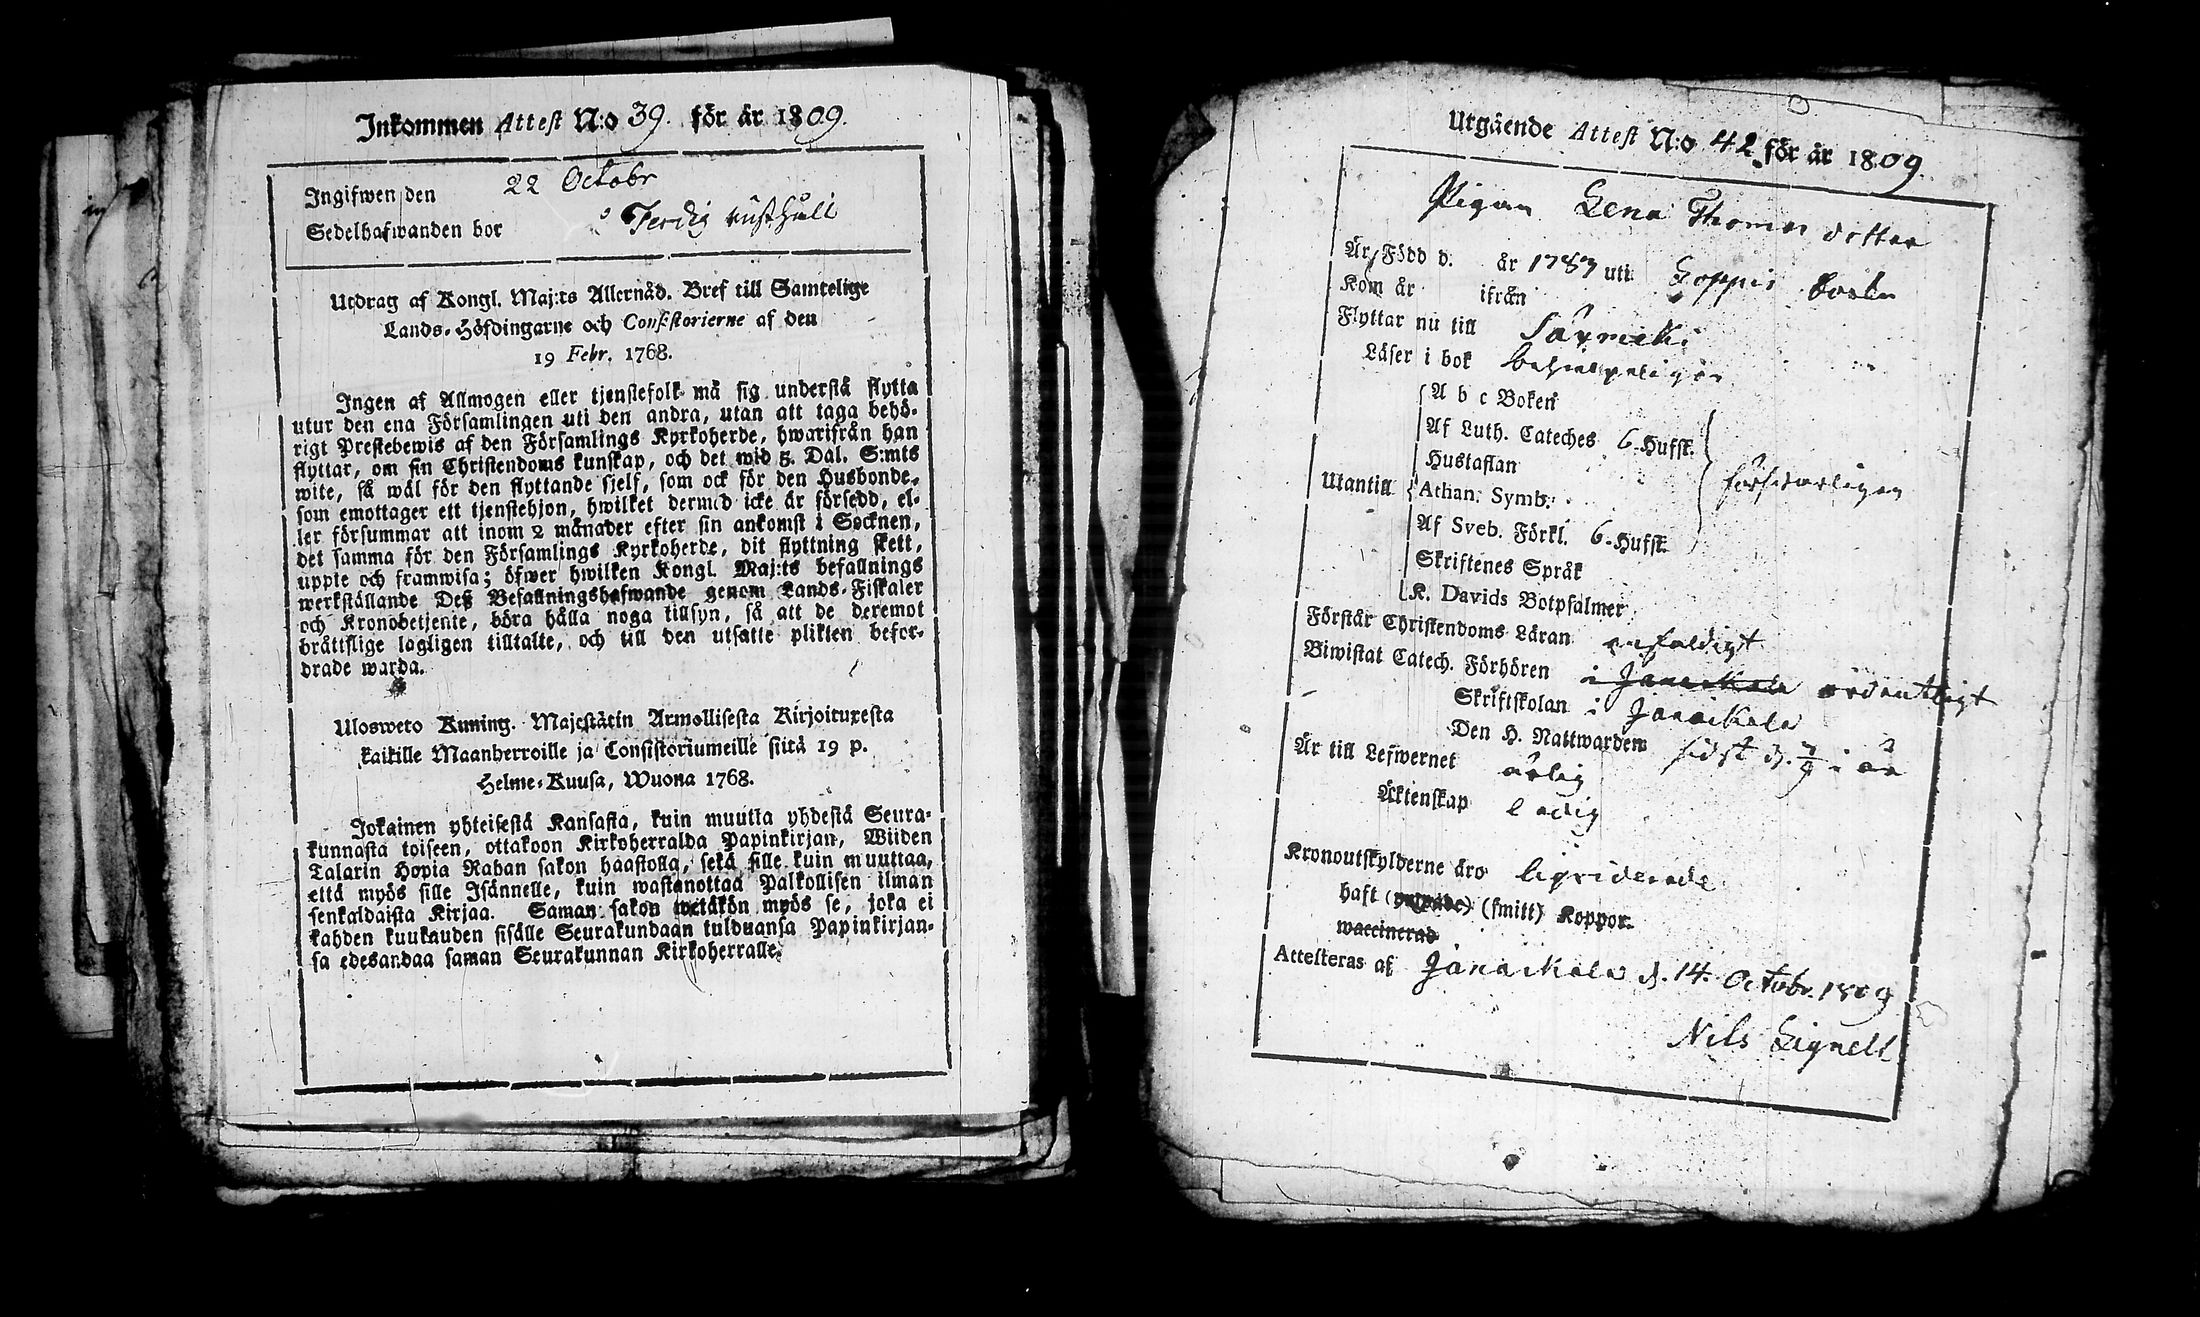 Inkommen Attest N:o 39. för år 1809.
Ingifwen den 22 Octobr
Sedelhafwanden bor Ferdig rusthåll
Utdrag af Kongl. Maj:ts Allernåd. Bref till Samtelige
Lands-Höfdingarne och Consistorierne af den
19 Febr. 1768.
Ingen af Allmogen eller tjenstefolk må sig understå flytta
utur den ena Församlingen uti den andra, utan att taga behö-
rigt Prestebewis af den Församlings Kyrkoherde, hwarifrån han
flyttar, om sin Christendoms kunskap, och det wid 5. Dal. S:mts
wite, så wäl för den flyttande sjelf, som ock för den Husbonde,
som emottager ett tjenstehjon, hwilket dermed icke är försedd, el-
ler försummar att inom 2 månader efter sin ankomst i Socknen,
det samma för den Församlings Kyrkoherde, dit flyttning skett,
uppte och framwisa; öfwer hwilken Kongl. Maj:ts befallnings
werkställande Deß Befallningshafwande genom Lands-Fiskaler
och Kronobetjente, böra hålla noga tillsyn, så att de deremot
bråttslige lagligen tilltalte, och till den utsatte plikten befor-
drade warda.
Ulosweto Kuning. Majestätin Armollisesta Kirjoituxesta
kaikille Maanherroille ja Consistoriumeille siitä 19 p.
Helme-Kuusa, Wuona 1768.
Jokainen yhteisestä Kansasta, kuin muutta yhdestä Seura-
kunnasta toiseen, ottakoon Kirkoherralda Papinkirjan, Wiiden
Talarin Hopia Rahan sakon haastolla, sekä sille kuin muuttaa,
että myös sille Isännelle, kuin wastanottaa Palkollisen ilman
senkaldaista Kirjaa. Saman sakon wetäkön myös se, joka ei
kahden kuukauden sisälle Seurakundaan tulduansa Papinkirjan-
sa edesandaa saman Seurakunnan Kirkoherralle.
Utgående Attest N:o 42 för år 1809.
Pigan Lena Thomas dotter
Är Född d. år 1787 uti Loppis
Kom år ifrån
Flyttar nu till
Läser i bok behielpeligen
A b c Boken
Af Luth. Cateches 6-Hufst.
Hustaflan
Utantill Athan. Symb. försvarligen
Af Sveb. Förkl. 6-Hufst.
Skriftenes Språk
K. Davids Botpsalmer
Förstår Christendoms Läran enfaldigt
Biwistat Catech. Förhören i Janackala ordentligt
Skriftskolan i Janackala
Den H. Nattwarden sidst d. 3/9 i år
Är till Lefwernet ärlig
Äktenskap ledig
Kronoutskylderne äro liqviderade
haft (smitt) Koppor.
waccinerad
Attesteras af Janackala d. 14. Octobr. 1809
Nils Lignell